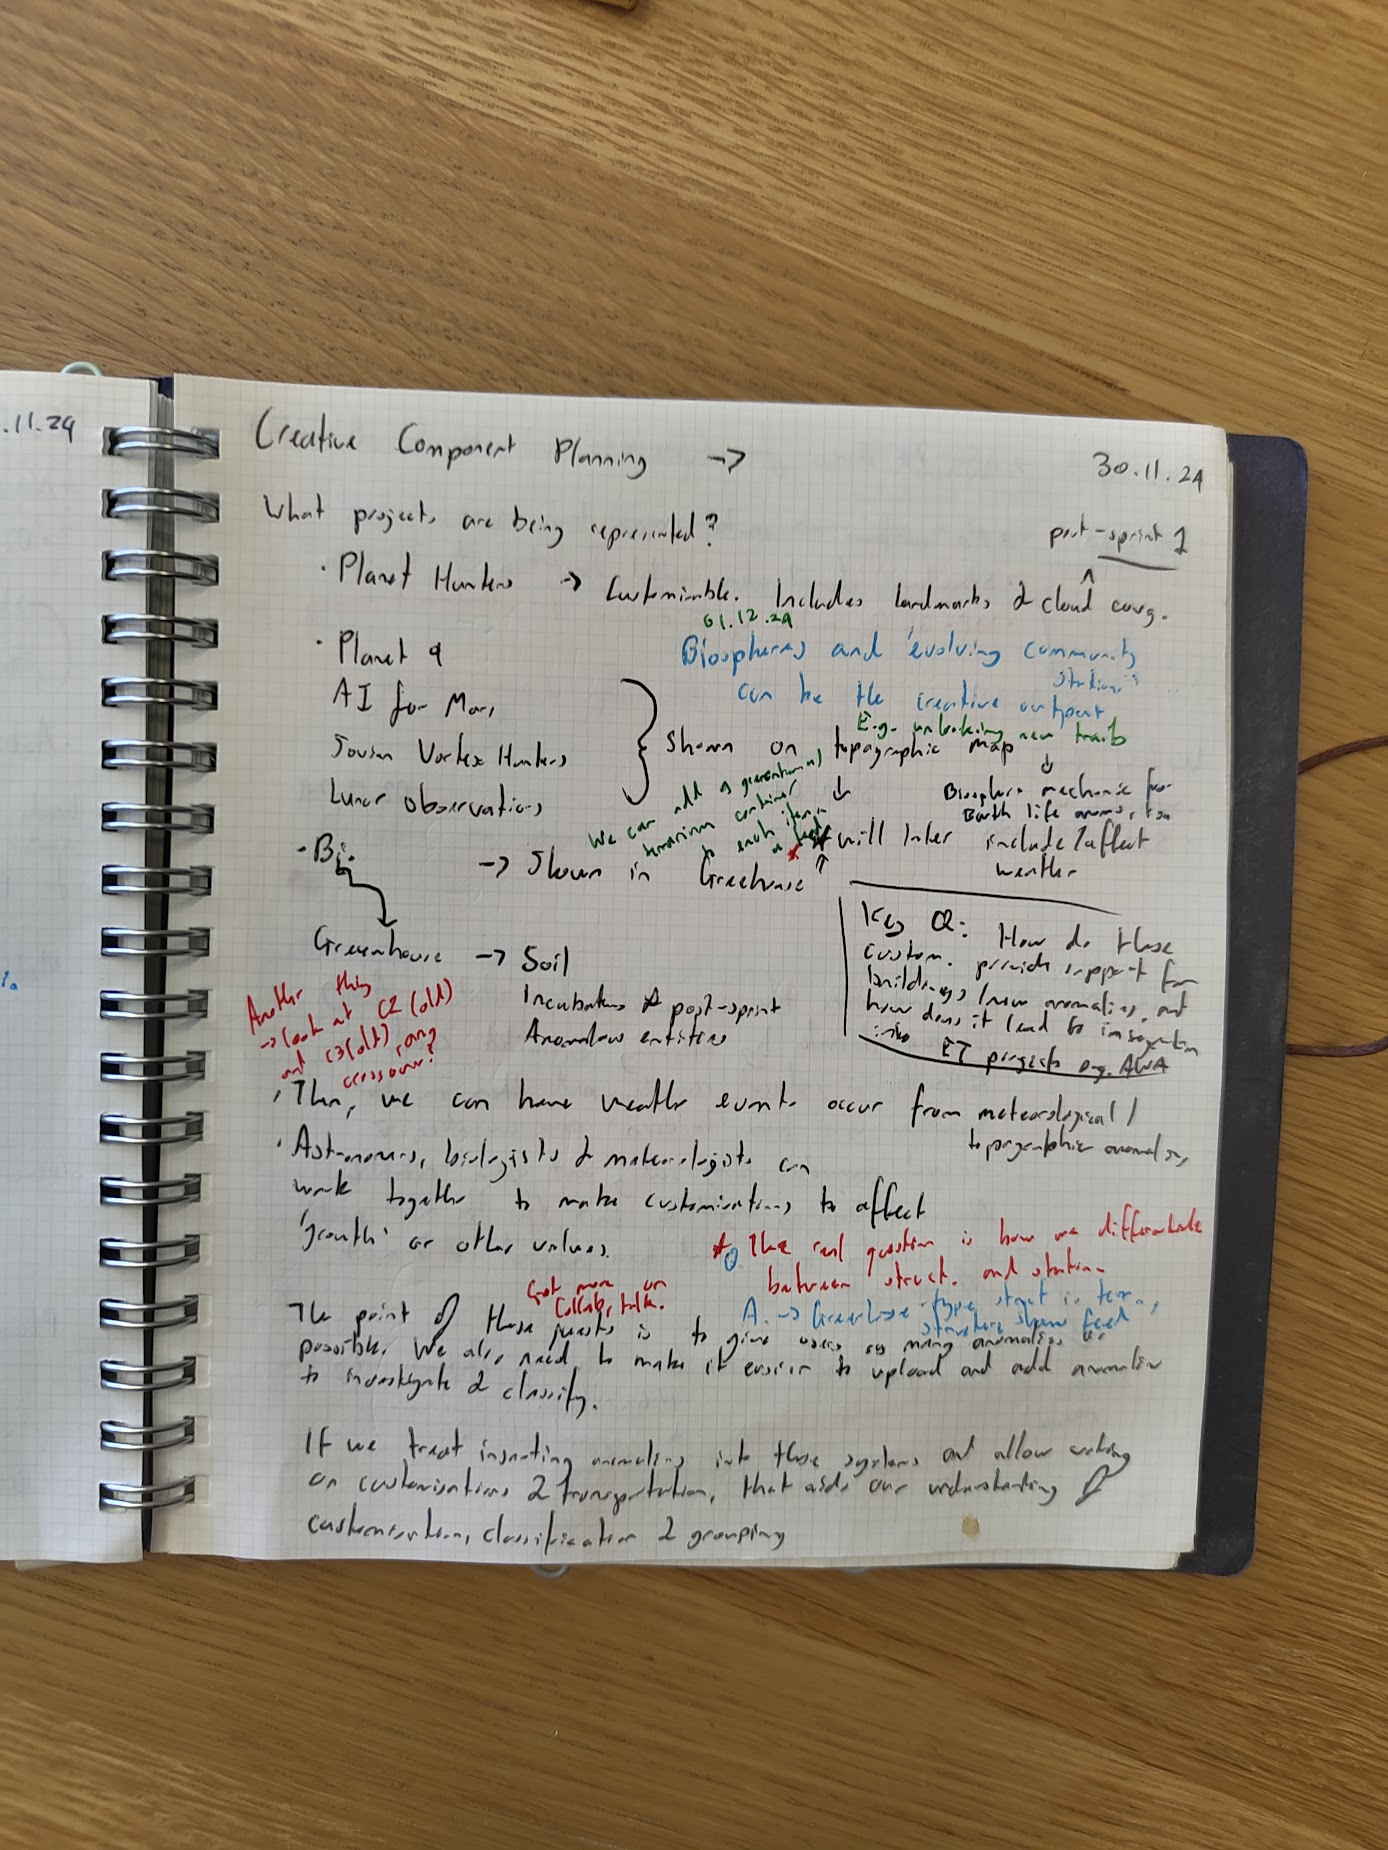 .11.24
Creative Component Planning →
30.11.24
What projects are being represented?
post-sprint 1
· Planet Hunters → Customisable. Includes landmarks & cloud covrg.
01.12.24
· Planet 9
Biospheres and 'evolving community
stations'
AI for Mars
can be the creative output
E.g. unlocking new traits
Jovian Vortex Hunters
Shown on topographic map
Lunar Observations
Biosphere mechanic for
Earth life anoms, too
We can add a greenhouse/
terrarium container
to each item
will later include/affect
weather
· Bio. → Shown in Greehouse
Greenhouse → Soil
Incubators * post-sprint
Anomalous entities
Key Q: How do these
custom. provide support for
buildings/new anomalies, and
how does it lead to
into ET projects e.g. AWA
Another thing
→ look at C2 (old)
and C3 (old)
crossover?
Then, we can have weather events occur from meteorological/
topographic anomalies,
· Astronomers, biologists & meteorologists can
work together to make customisations to affect
'growth' or other values.
* The real question is how we differentiate
between struct. and station
Get more on
Collabs, talk.
A. → Greenhouse-type struct is
structure feed
The point of these quests is to give users as many anomalies as
possible. We also need to make it easier to upload and add anomalies
to investigate & classify.
If we treat inserting anomalies into these systems and allow voting
on customisations & transportation, that aids our understanding of
customisation, classification & grouping